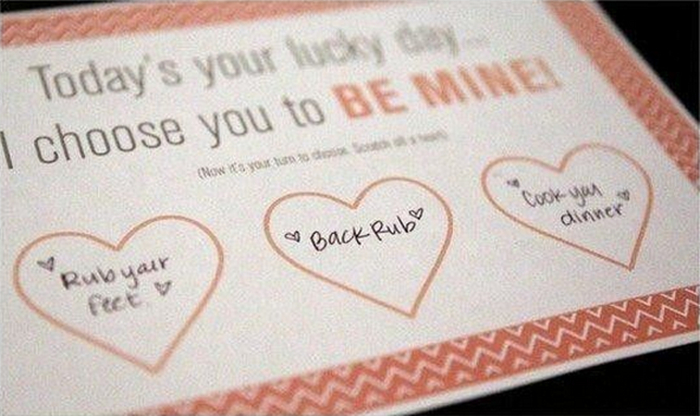 Today's your lucky day...
I choose you to BE MINE!
(Now it's your turn to choose. Scratch off a heart)
Rub your
feet
Back Rub
Cook you
dinner